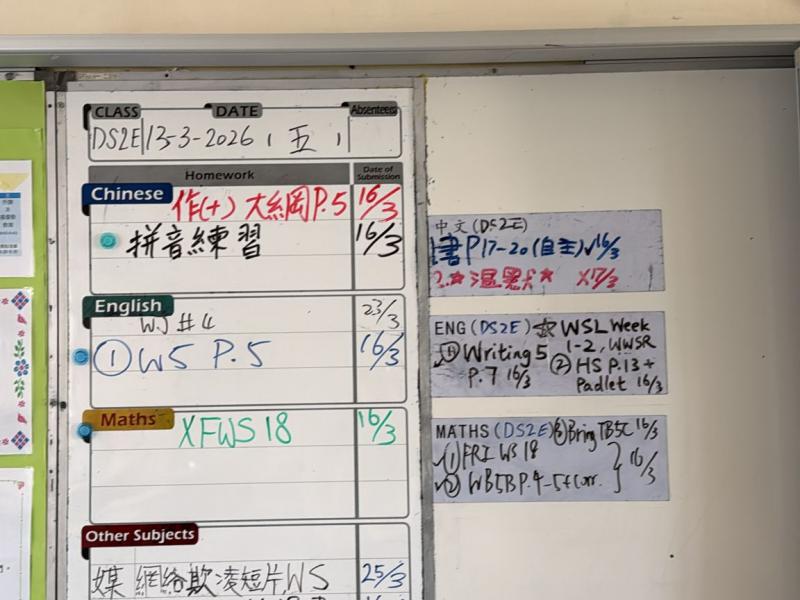 CLASS DATE Absentees
DS2E 13-3-2026 ( 五 )
Homework Date of Submission
Chinese
作(+) 大綱 P.5 16/3
拼音練習 16/3
English
W.J #4 23/3
① W5 P.5 16/3
Maths
XFWS 18 16/3
Other Subjects
媒 網絡欺凌短片 WS 25/3
中文 (DS2E)
書 P17-20 (自主) ✓ 16/3
2.★ 溫默 ★ X17/3
ENG (DS2E) ☆ WSL Week
1-2, WWSR
① Writing 5
P.7 16/3
② HS P.13 +
Padlet 16/3
MATHS (DS2E) ③ Bring TB5C 16/3
① FRI WS 18
② WB5B P.4-5+Corr. } 16/3